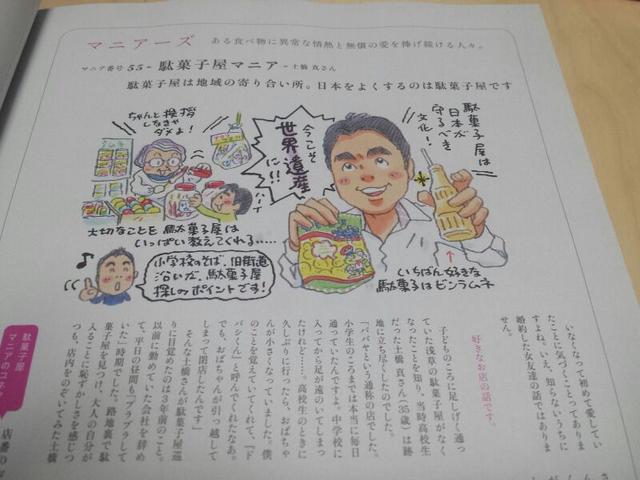 マニアーズ ある食べ物に異常な情熱と無償の愛を捧げ続ける人々。
マニア番号 55 - 駄菓子屋マニア - 土橋 真さん
駄菓子屋は地域の寄り合い所。日本をよくするのは駄菓子屋です
ちゃんと挨拶
しなきゃ
ダメよ!
ハーイ
大切なことを駄菓子屋は
いっぱい教えてくれる……
今こそ
世界遺産
に!!
駄菓子屋は
日本が
守るべき
文化!
いちばん好きな
駄菓子はビンラムネ
小学校のそば、旧街道
沿いが、駄菓子屋
探しのポイントです!
いなくなって初めて愛してい
たことに気づくことってありま
すよね。いえ、知らないうちに
婚約した女友達の話ではありま
せん。
好きなお店の話です。
子どものころに足しげく通っ
ていた浅草の駄菓子屋がなく
なったことを知り、当時高校生
だった土橋 真さん(35歳)は跡
地に立ち尽くしたのでした。
「ババヤという通称の店でした。
小学生のころまでは本当に毎日
通っていたんですよ。中学校に
入ってから足が遠のいてしまっ
たけれど……。高校生のときに
久しぶりに行ったら、おばちゃ
んが小さくなっていました。僕
のことを覚えていてくれて、『ド
バシくん』と呼んでくれたなあ。
でも、おばちゃんが引っ越して
しまって閉店したんです」
そんな土橋さんが駄菓子屋巡
りに目覚めたのは3年前のこと。
以前に勤めていた会社を辞め
て、平日の昼間も「ブラブラして
いた」時期でした。路地裏で駄
菓子屋を見つけ、大人の自分が
入ることに恥ずかしさを感じつ
つも、店内をのぞいてみた土橋
駄菓子屋
マニアのコネタ